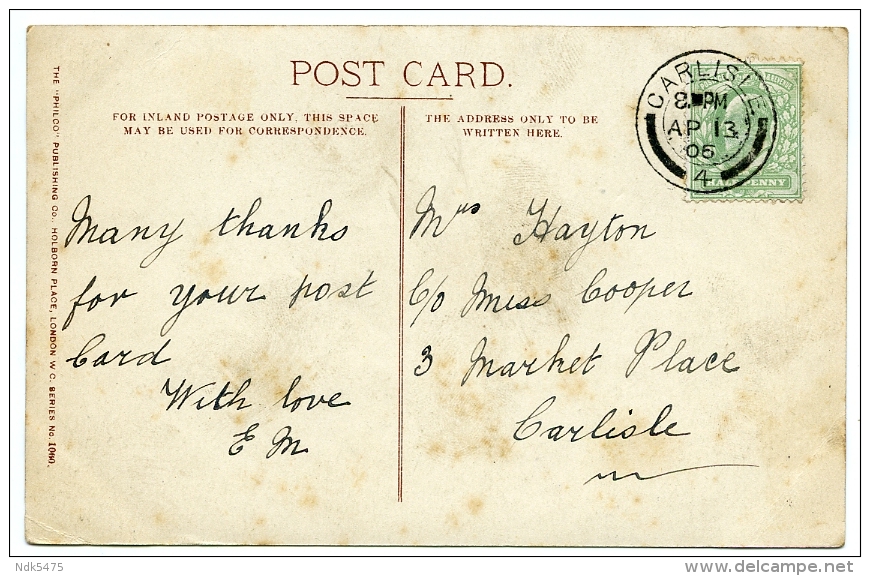 POST CARD.
FOR INLAND POSTAGE ONLY, THIS SPACE
MAY BE USED FOR CORRESPONDENCE.
THE ADDRESS ONLY TO BE
WRITTEN HERE.
CARLISLE
8. PM
AP 13
06
4
HALFPENNY
THE "PHILCO" PUBLISHING CO., HOLBORN PLACE, LONDON W C. SERIES No. 1060.
Many thanks
for your post
Card
With love
E M
Mrs Hayton
C/o Miss Cooper
3 Market Place
Carlisle
Ndk5475
delcampe.net